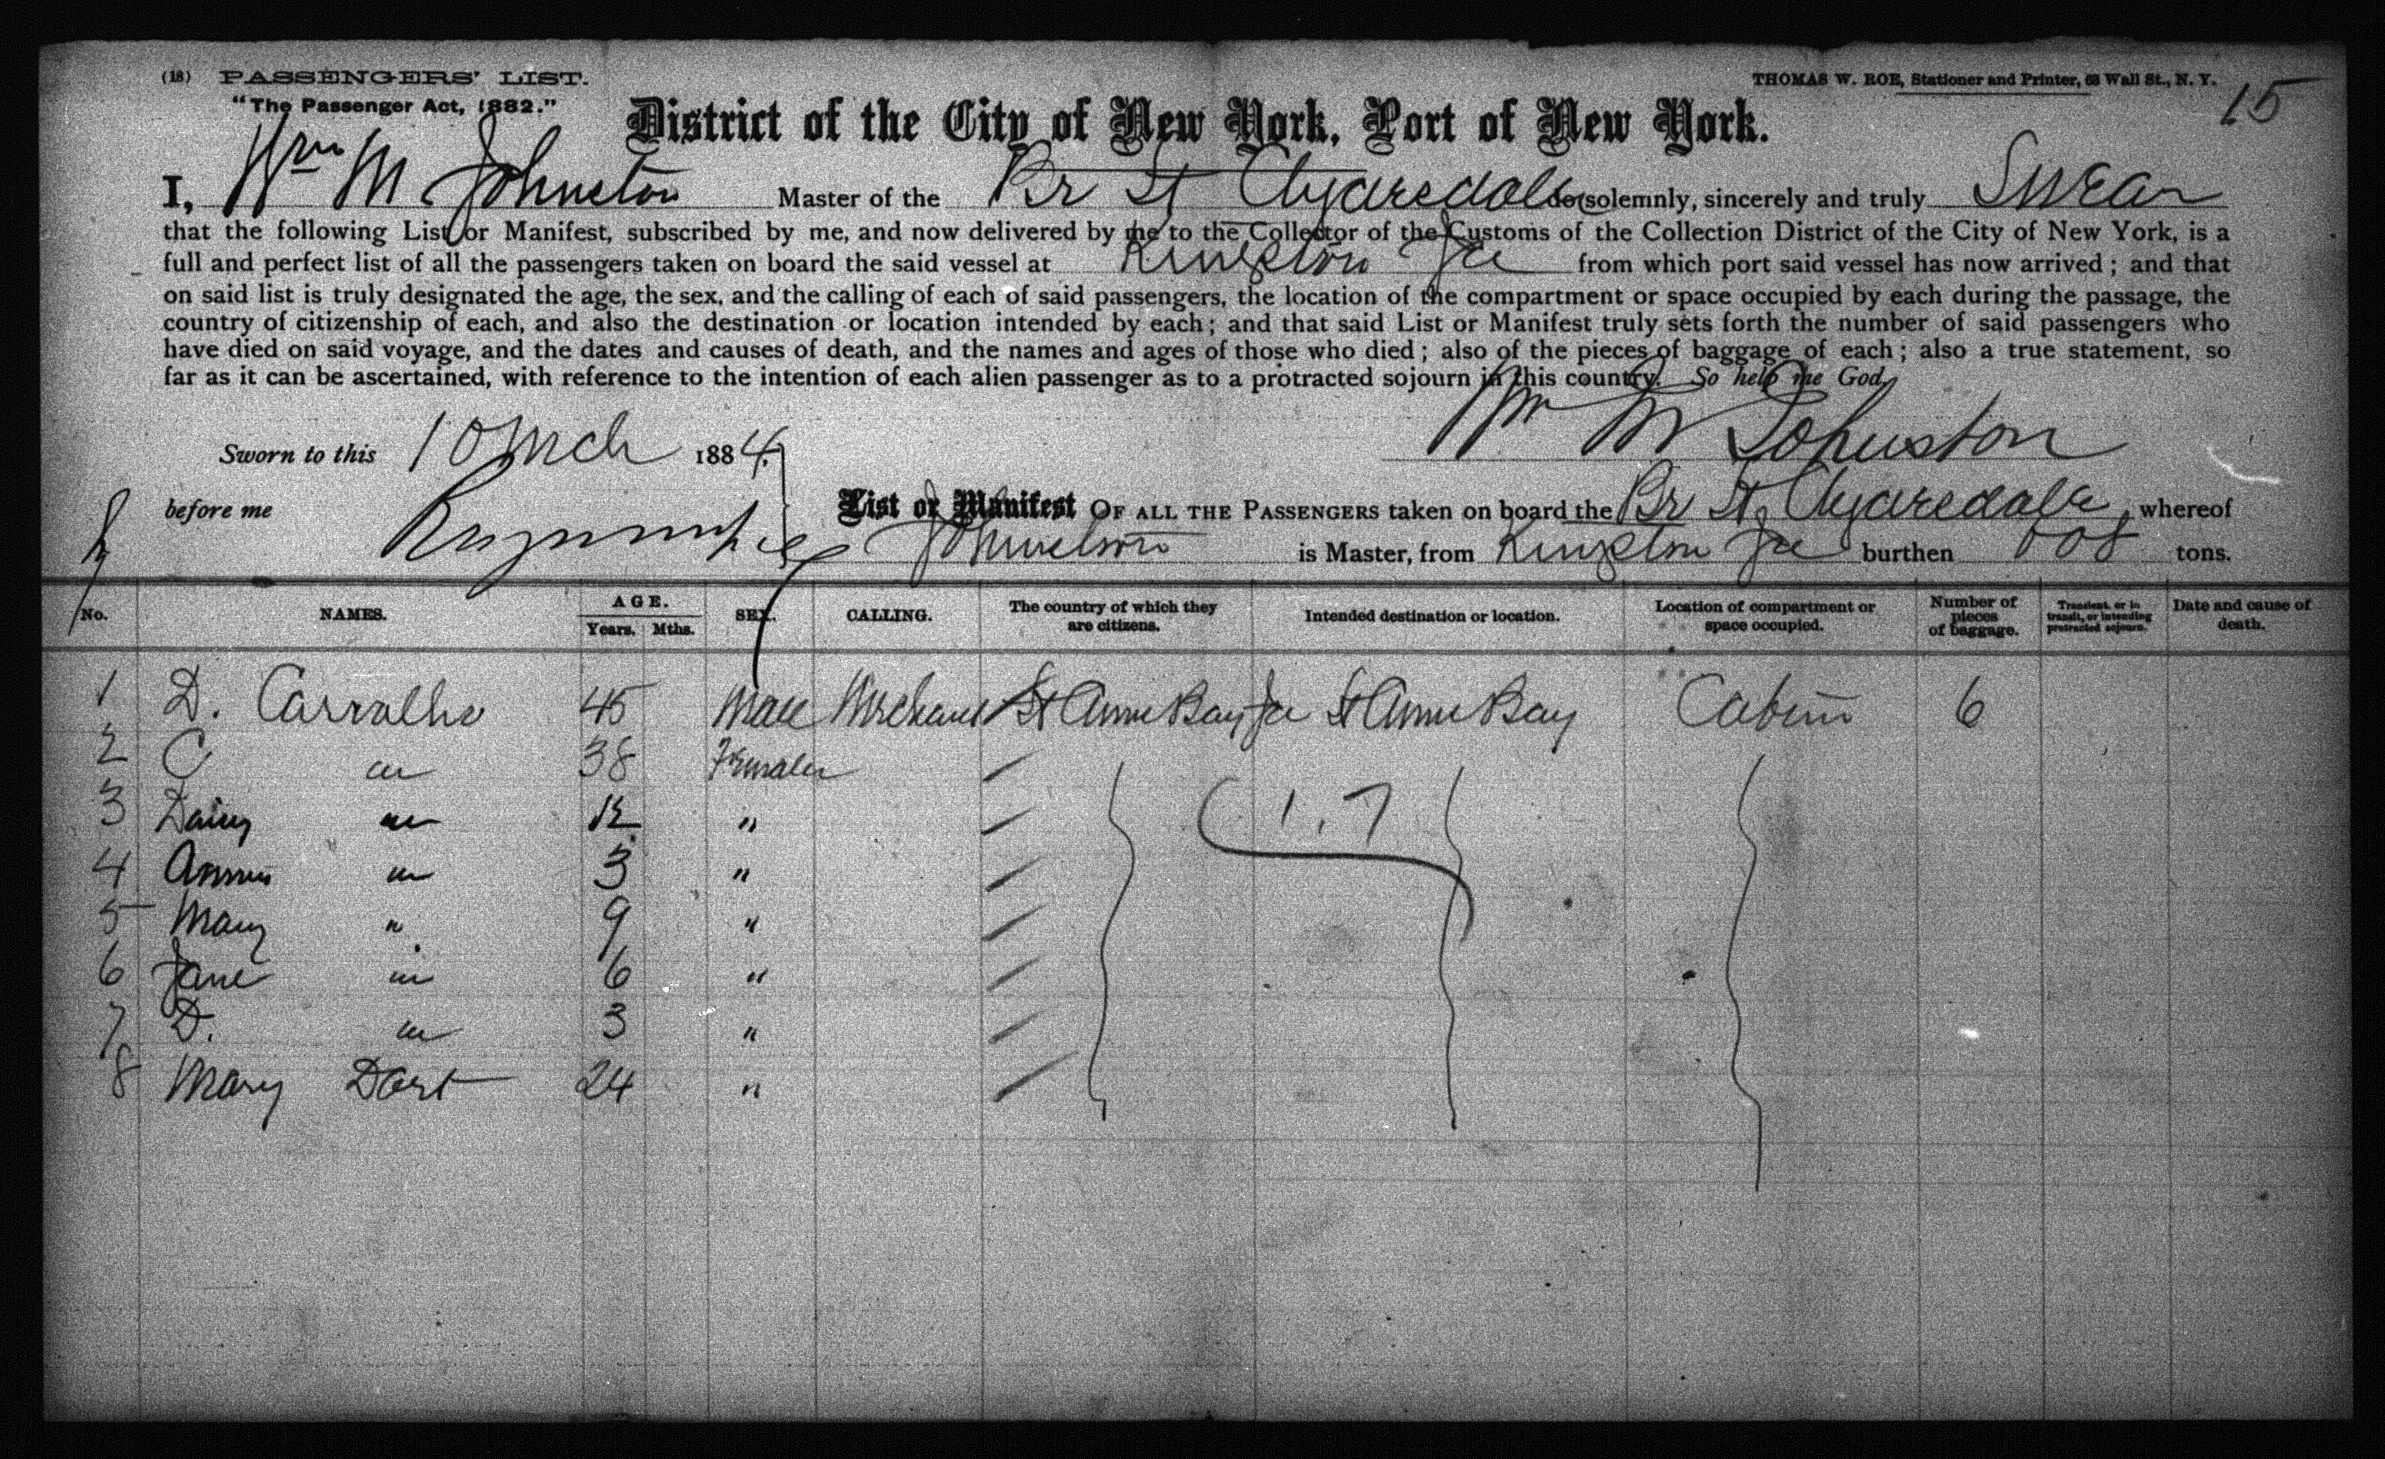 (18) PASSENGERS' LIST.
THOMAS W. ROE, Stationer and Printer, 63 Wall St., N. Y.
"The Passenger Act, 1882."
15
District of the City of New York, Port of New York.
I, Wm M Johnston Master of the Br St do solemnly, sincerely and truly Swear
that the following List or Manifest, subscribed by me, and now delivered by me to the Collector of the Customs of the Collection District of the City of New York, is a
full and perfect list of all the passengers taken on board the said vessel at Kingston Jca from which port said vessel has now arrived; and that
on said list is truly designated the age, the sex, and the calling of each of said passengers, the location of the compartment or space occupied by each during the passage, the
country of citizenship of each, and also the destination or location intended by each; and that said List or Manifest truly sets forth the number of said passengers who
have died on said voyage, and the dates and causes of death, and the names and ages of those who died; also of the pieces of baggage of each; also a true statement, so
far as it can be ascertained, with reference to the intention of each alien passenger as to a protracted sojourn in this country. So help me God.
Wm M Johnston
Sworn to this 10 Mch 1884.
before me
List or Manifest OF ALL THE PASSENGERS taken on board the Br St , whereof
Johnston is Master, from Kingston Jca burthen tons.
No. NAMES. AGE. Years. Mths. SEX. CALLING. The country of which they are citizens. Intended destination or location. Location of compartment or space occupied. Number of pieces of baggage. Transient, or in transit, or intending protracted sojourn. Date and cause of death.
1 D. Carvalho 45 Male Merchant St Anns Bay Jca St Anns Bay Cabin 6
2 C " 38 Female
3 Daisy " 12 "
1.7
4 Annie " 3 "
5 Mary " 9 "
6 Jane " 6 "
7 D. " 3 "
8 Mary Dort 24 "